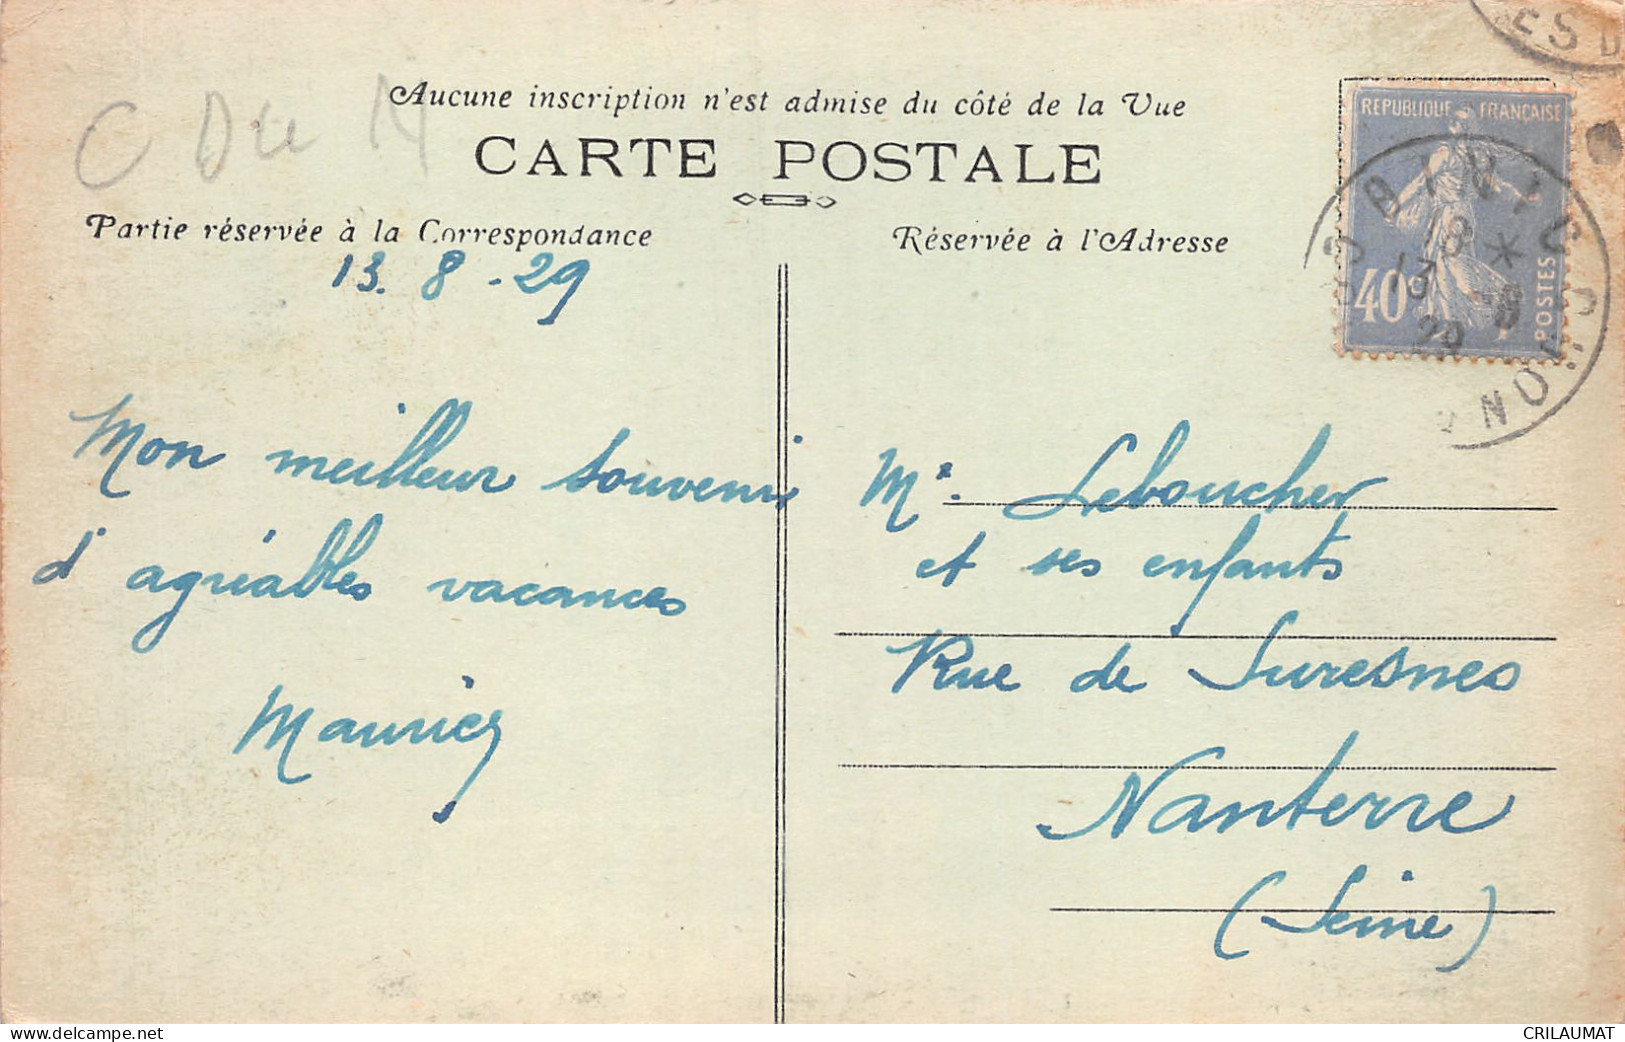 C Du M
Aucune inscription n'est admise du côté de la Vue
CARTE POSTALE
Partie réservée à la Correspondance
Réservée à l'Adresse
REPUBLIQUE FRANÇAISE
40c
POSTES
BINIC
18 *
13 -8
29
13. 8 - 29
Mon meilleur souvenir
d'agréables vacances
Maurice
Mr. Leboucher
et ses enfants
Rue de Suresnes
Nanterre
(Seine)
delcampe.net
CRILAUMAT